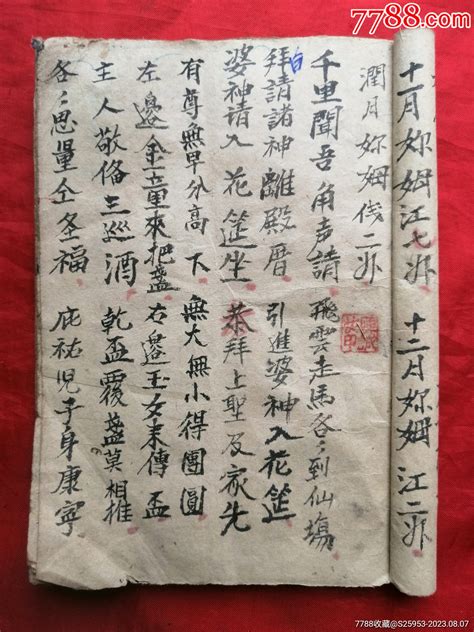 7788.com
十一月妳姆江七娘 十二月妳姆江二娘
潤月妳姆伐二娘
千里聞吾角声請 飛雲走馬各々到仙塲
拜請諸神離殿厝 引進婆神入花筵
白
婆神請入花筵坐 恭拜上聖及家先
有尊無早分高下 無大無小得團圓
左邊金童來把盞 右邊玉女来傳盃
主人敬俻三巡酒 乾盃覆盞莫相推
各々思量仝圣福 庇祐児子身康寧
7788收藏@S25953-2023.08.07